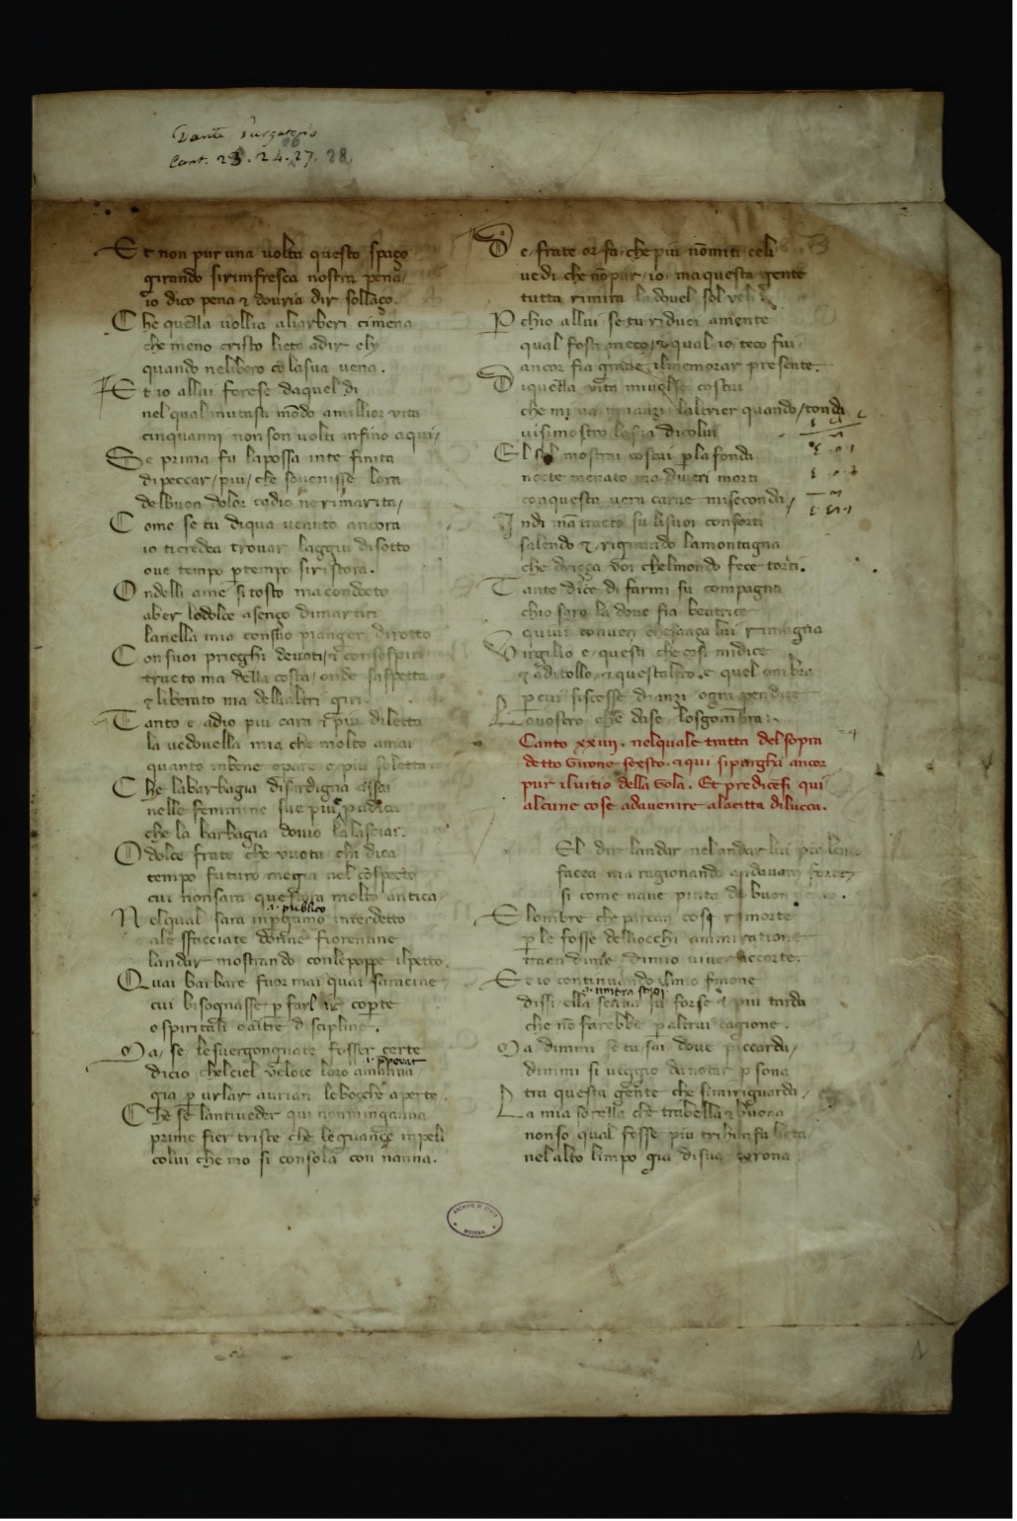 Dante Purgatorio
Cant. 23. 24. 27. 28
Et non pur una volta questo spaço
girando si rinfresca nostra pena/
io dico pena & douria dir sollaço.
Che quella vollia aliarberi cimena
che meno cristo lieto adir ely
quando ne libero cola sua vena.
Et io allui forese daquel di
nel qual mutasti mondo amillior vita
cinquanni non son volti infino aqui/
Se prima fu lapossa in te finita
di peccar/piu/che souenisse lora
del buon dolor cadio ne rimarita/
Come se tu diqua venuto ancora
io ti credea trouar laggiu disotto
oue tempo per tempo si ristora.
Ondelli ame si tosto ma condoto
aber lodolce asenço dimartiri
la nella mia con suo pianger dirotto
Con suoi prieghi deuoti & con sospiri
tracto ma della costa/onde saspetta
& liberato ma dellaltri giri.
Tanto e adio piu cara & piu diletta
la vedouella mia che molto amai
quanto inbene opare e piu soletta
Che labarbagia disardigna assai
nelle femmine sue piu e pudica
che la barbagia douio la lasciai.
O dolce frate che vuotu chi dica
tempo futuro me gia nel conspecto
cui non sara questora molto antica
.i. publico
Nel qual sara inpergamo interdetto
ale sfacciate donne fiorentine
landar mostrando conlepoppe ilpetto.
Quai barbare fuor mai quai saracine
cui bisognasse per farle ir coperte
o spiritali o altre discipline.
Ma/se le suergongnate fosser certe
.i. preparar
dicio chelciel veloce loro ammanna
gia per vrlar aurian le bocche aperte.
Che se lantiueder qui non minganna
prime fier triste che le guançe inpeli
colui che mo si consola con nanna.
De/frate or fa/che piu non miti celi
vedi che non pur/io/ma questa gente
tutta rimira la douel sol veli.
Perchio allui se tu riduci amente
qual fosti meco/& qual io teco fui/
ancor fia graue il memorar presente.
Di quella vita mi volse costui
che mi va innanzi laltrier quando/tonda
vi si mostro la suora dicolui
El sol mostrai costui per la fonda
nocte menato ma diueri morti
con questa vera carne miseconda/
Indi man tracto su li suoi conforti
salendo & rigirando lamontagna
che driçça voi chelmondo fece torti.
Tanto dice di farmi su compagna
chio saro la doue fia beatrice
quiui conuen che sança lui rimagna
Virgilio e/questi che cosi midice
& additollo/& questaltro e quel ombra
per cui scosse dianzi ogni pendice
Lo vostro che da se lo sgombra:
Canto xxiiij. nelquale tratta del sopra
detto Girone sexto. & qui si parghi ancor
pur il uitio della Gola. Et predicesi qui
alcune cose adauenire alacitta di lucca.
24
El dir landar nelandar lui piu lento
facea ma ragionando andauam forte
si come naue pinta da buon vento.
E lombre che parean cose rimorte
per le fosse deliocchi ammiratione
traean dime dimio viuer accorte.
Et io continuando ilmio sermone
dissi ella sen va su forse piu tarda
che non farebbe per altrui cagione.
Ma dimmi se tu/sai doue piccarda/
dimmi si ueggio da notar persona
tra questa gente che si mi riguarda/
La mia sorella che tra bella & buona
non so qual fosse piu triumpha lieta
nel alto limpo gia di sua corona.
ARCHIVIO DI STATO
MODENA